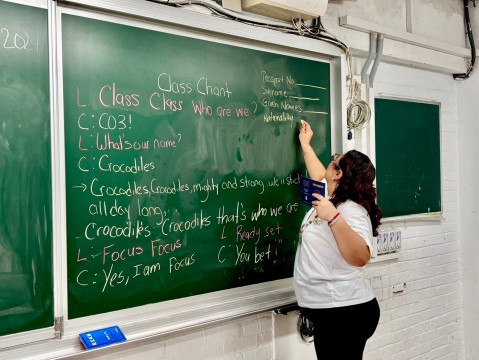 2024
Class Chant
L: Class Class Who are we?
C: CO3!
L: What's our name?
C: Crocodiles
→ Crocodiles, Crocodiles, mighty and strong, we'll stick
all day long,
Crocodiles - Crocodiles that's who we are
L - Focus Focus
C: Yes, I am Focus
L Ready set
C You bet!
Passport No.
Surname
Given Names
Nationality